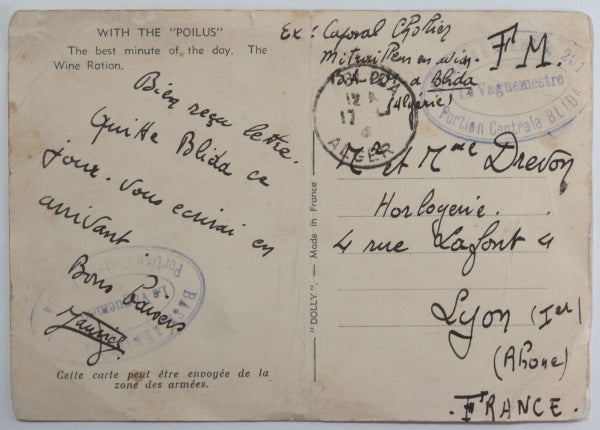 WITH THE "POILUS"
The best minute of the day. The
Wine Ration.
Bien reçu lettre.
Quitte Blida ce
jour. Vous ecrirai en
arrivant.
Bons Baisers
Cette carte peut être envoyée de la
zone des armées.
"DOLLY". — Made in France
Ex: Caporal
Mitrailleur en avion
à Blida
(Algérie)
F.M.
ALGER
Le Vaguemestre
Portion Centrale BLIDA
Mr et Mme Drevon
Horlogerie.
4 rue Lafont 4
Lyon (Ier)
(Rhone)
.FRANCE.
Le Vaguemestre